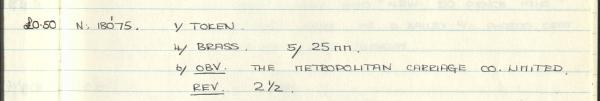 £0.50 N: 18075. 1/ TOKEN
4/ BRASS. 5/ 25 mm.
6/ OBV. THE METROPOLITAN CARRIAGE CO. LIMITED.
REV. 2 1/2.